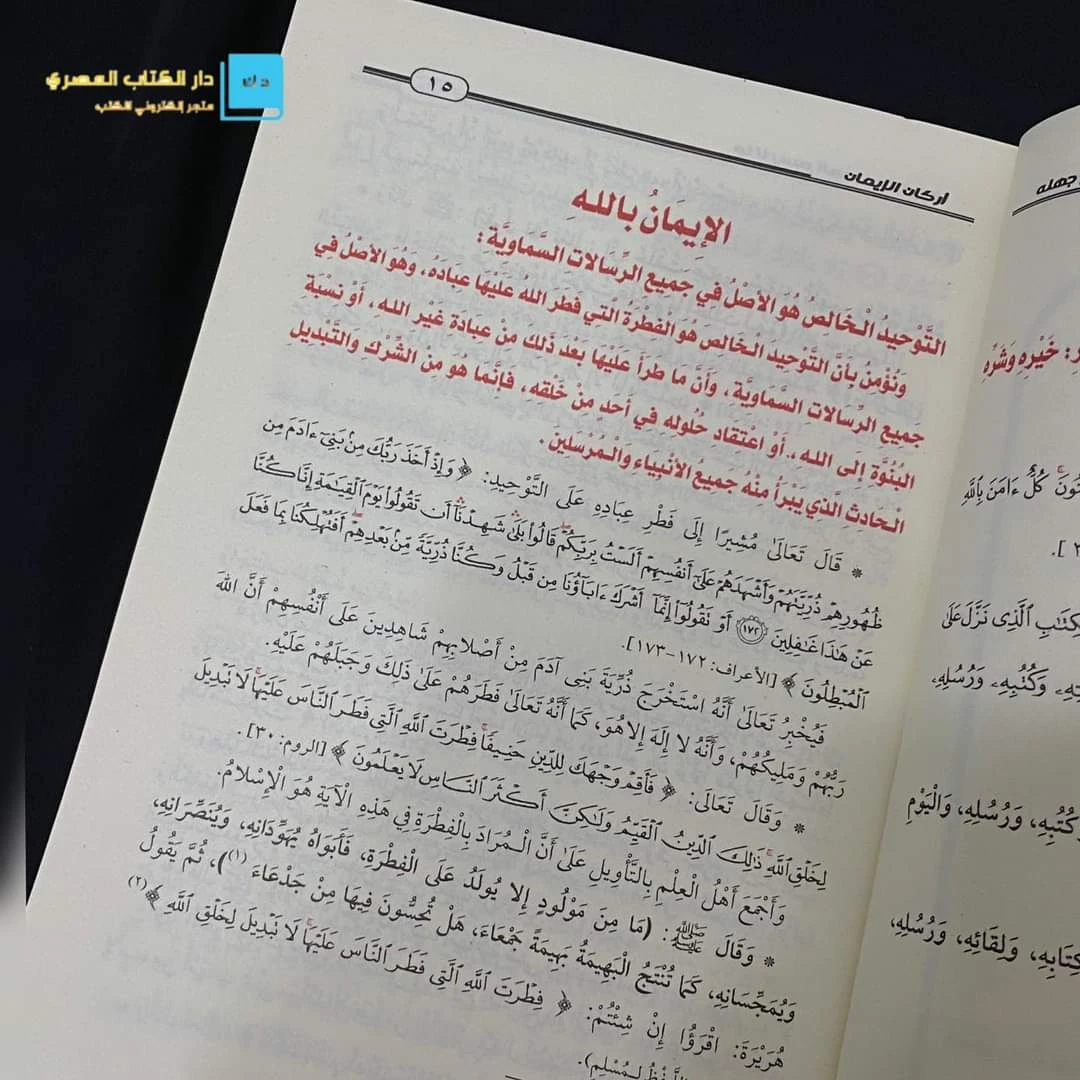 دار الكتاب المصري
متجر إلكتروني للكتب
د ك
١٥
أركان الإيمان
الإِيمَانُ بِاللهِ
التَّوْحِيدُ الْخَالِصُ هُوَ الأَصْلُ فِي جَمِيعِ الرِّسَالاتِ السَّمَاوِيَّةِ :
وَنُؤْمِنُ بِأَنَّ التَّوْحِيدَ الْخَالِصَ هُوَ الْفِطْرَةُ الَّتِي فَطَرَ اللهُ عَلَيْهَا عِبَادَهُ، وَهُوَ الأَصْلُ فِي
جَمِيعِ الرِّسَالاتِ السَّمَاوِيَّةِ، وَأَنَّ مَا طَرَأَ عَلَيْهَا بَعْدَ ذَلِكَ مِنْ عِبَادَةِ غَيْرِ اللهِ، أَوْ نِسْبَةِ
الْبُنُوَّةِ إِلَى اللهِ، أَوْ اعْتِقَادِ حُلُولِهِ فِي أَحَدٍ مِنْ خَلْقِهِ، فَإِنَّمَا هُوَ مِنَ الشِّرْكِ وَالتَّبْدِيلِ
الْحَادِثِ الَّذِي يَبْرَأُ مِنْهُ جَمِيعُ الأَنْبِيَاءِ وَالْمُرْسَلِينَ .
* قَالَ تَعَالَىٰ مُشِيرًا إِلَى فَطْرِ عِبَادِهِ عَلَى التَّوْحِيدِ: ﴿ وَإِذْ أَخَذَ رَبُّكَ مِنۢ بَنِىٓ ءَادَمَ مِن
ظُهُورِهِمْ ذُرِّيَّتَهُمْ وَأَشْهَدَهُمْ عَلَىٰٓ أَنفُسِهِمْ أَلَسْتُ بِرَبِّكُمْ ۖ قَالُوا۟ بَلَىٰ ۛ شَهِدْنَآ ۛ أَن تَقُولُوا۟ يَوْمَ ٱلْقِيَـٰمَةِ إِنَّا كُنَّا
عَنْ هَـٰذَا غَـٰفِلِينَ ﴿١٧٢﴾ أَوْ تَقُولُوٓا۟ إِنَّمَآ أَشْرَكَ ءَابَآؤُنَا مِن قَبْلُ وَكُنَّا ذُرِّيَّةً مِّنۢ بَعْدِهِمْ ۖ أَفَتُهْلِكُنَا بِمَا فَعَلَ
ٱلْمُبْطِلُونَ ﴾ [الأعراف: ١٧٢-١٧٣].
فَيُخْبِرُ تَعَالَىٰ أَنَّهُ اسْتَخْرَجَ ذُرِّيَّةَ بَنِى آدَمَ مِنْ أَصْلَابِهِمْ شَاهِدِينَ عَلَى أَنْفُسِهِمْ أَنَّ اللهَ
رَبُّهُمْ وَمَلِيكُهُمْ، وَأَنَّهُ لا إِلَهَ إِلا هُوَ، كَمَا أَنَّهُ تَعَالَىٰ فَطَرَهُمْ عَلَىٰ ذَلِكَ وَجَبَلَهُمْ عَلَيْهِ.
* وَقَالَ تَعَالَى: ﴿ فَأَقِمْ وَجْهَكَ لِلدِّينِ حَنِيفًا ۚ فِطْرَتَ ٱللَّهِ ٱلَّتِى فَطَرَ ٱلنَّاسَ عَلَيْهَا ۚ لَا تَبْدِيلَ
لِخَلْقِ ٱللَّهِ ۚ ذَٰلِكَ ٱلدِّينُ ٱلْقَيِّمُ وَلَـٰكِنَّ أَكْثَرَ ٱلنَّاسِ لَا يَعْلَمُونَ ﴾ [الروم: ٣٠].
وَأَجْمَعَ أَهْلُ الْعِلْمِ بِالتَّأْوِيلِ عَلَىٰ أَنَّ الْمُرَادَ بِالْفِطْرَةِ فِي هَذِهِ الْآيَةِ هُوَ الْإِسْلَامُ.
* وَقَالَ ﷺ: (مَا مِنَ مَوْلُودٍ إِلا يُولَدُ عَلَى الْفِطْرَةِ، فَأَبَوَاهُ يُهَوِّدَانِهِ، وَيُنَصِّرَانِهِ،
وَيُمَجِّسَانِهِ، كَمَا تُنْتَجُ الْبَهِيمَةُ بَهِيمَةً جَمْعَاءَ، هَلْ تُحِسُّونَ فِيهَا مِنْ جَدْعَاءَ (١))، ثُمَّ يَقُولُ
هُرَيْرَةَ: اقْرَؤُا إِنْ شِئْتُمْ: ﴿ فِطْرَتَ ٱللَّهِ ٱلَّتِى فَطَرَ ٱلنَّاسَ عَلَيْهَا ۚ لَا تَبْدِيلَ لِخَلْقِ ٱللَّهِ ﴾ (٢)
لِمُسْلِمٍ).
جهله
خَيْرِهِ وَشَرِّهِ
كُلٌّ ءَامَنَ بِٱللَّهِ
].
ٱلَّذِى نَزَّلَ عَلَىٰ
وَكُتُبِهِۦ وَرُسُلِهِۦ
كُتُبِهِ، وَرُسُلِهِ، وَالْيَوْمِ
كِتَابِهِ، وَلِقَائِهِ، وَرُسُلِهِ،